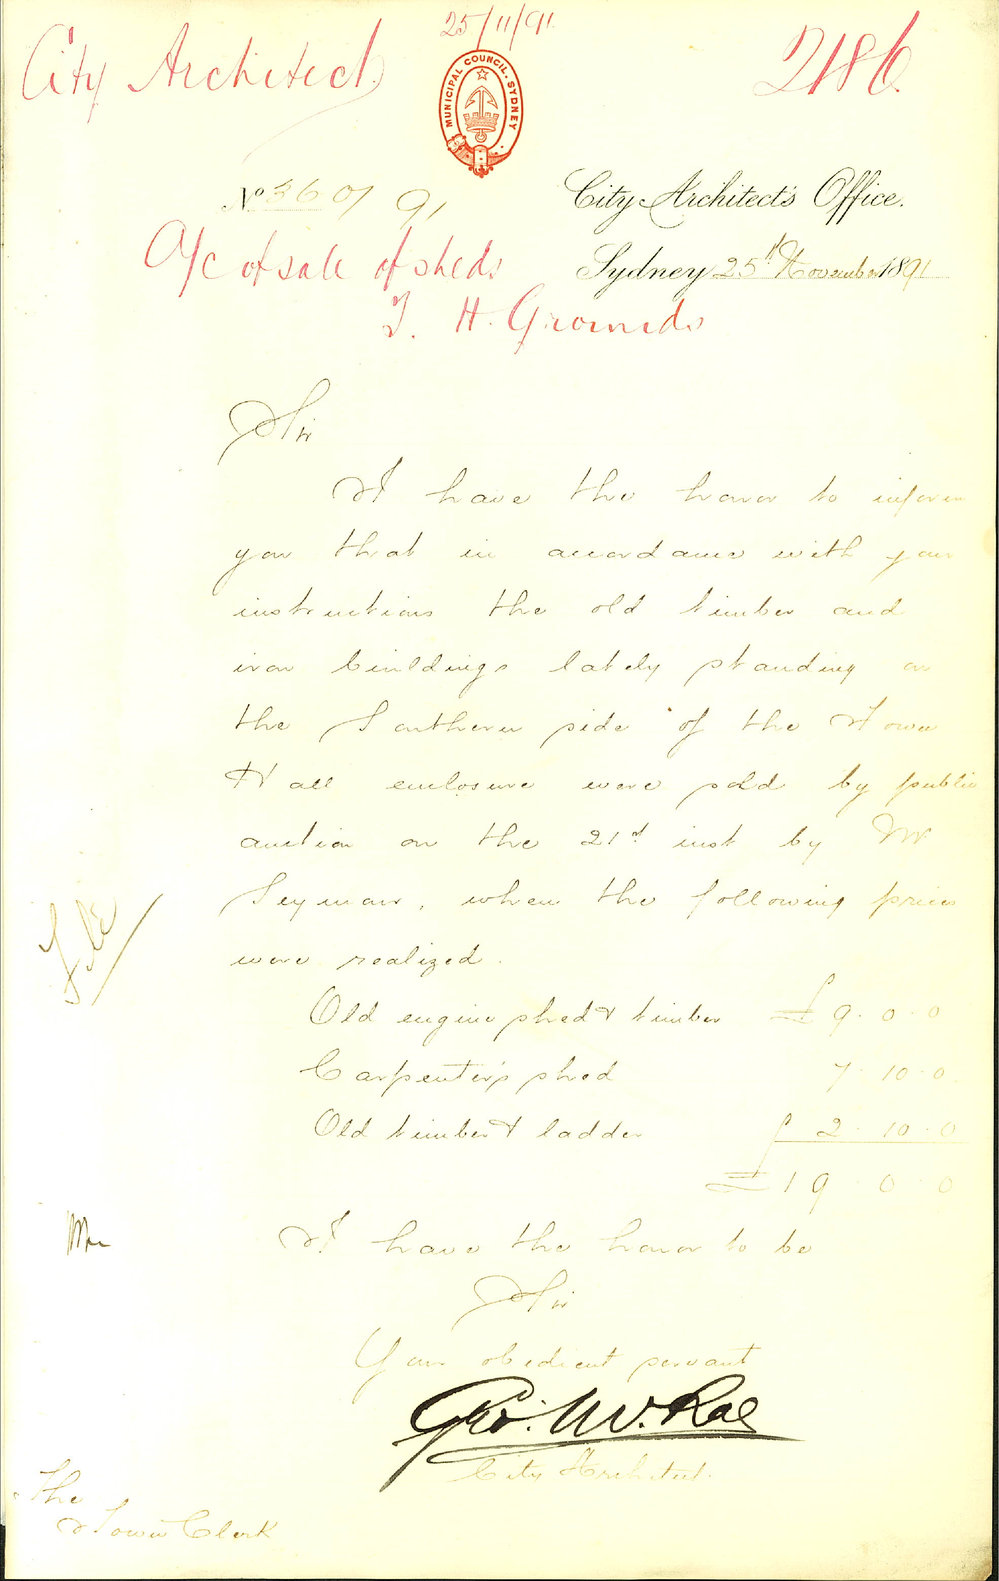 25/11/91
City Architect
2186
MUNICIPAL COUNCIL. SYDNEY
No 360/91
City Architect's Office.
A/c of sale of sheds
Sydney 25th November 1891
T. H. Grounds
Sir
I have the honor to inform
you that in accordance with your
instructions the old timber and
iron buildings lately standing on
the Southern side of the Town
Hall enclosure were sold by public
auction on the 21st inst by Mr
Seymour, when the following prices
were realized.
Old engine shed & timber £9.0.0
Carpenter's shed 7.10.0
Old timber & ladder £2.10.0
£19.0.0
File
I have the honor to be
Sir
Your obedient servant
Geo. McRae
City Architect.
The
Town Clerk